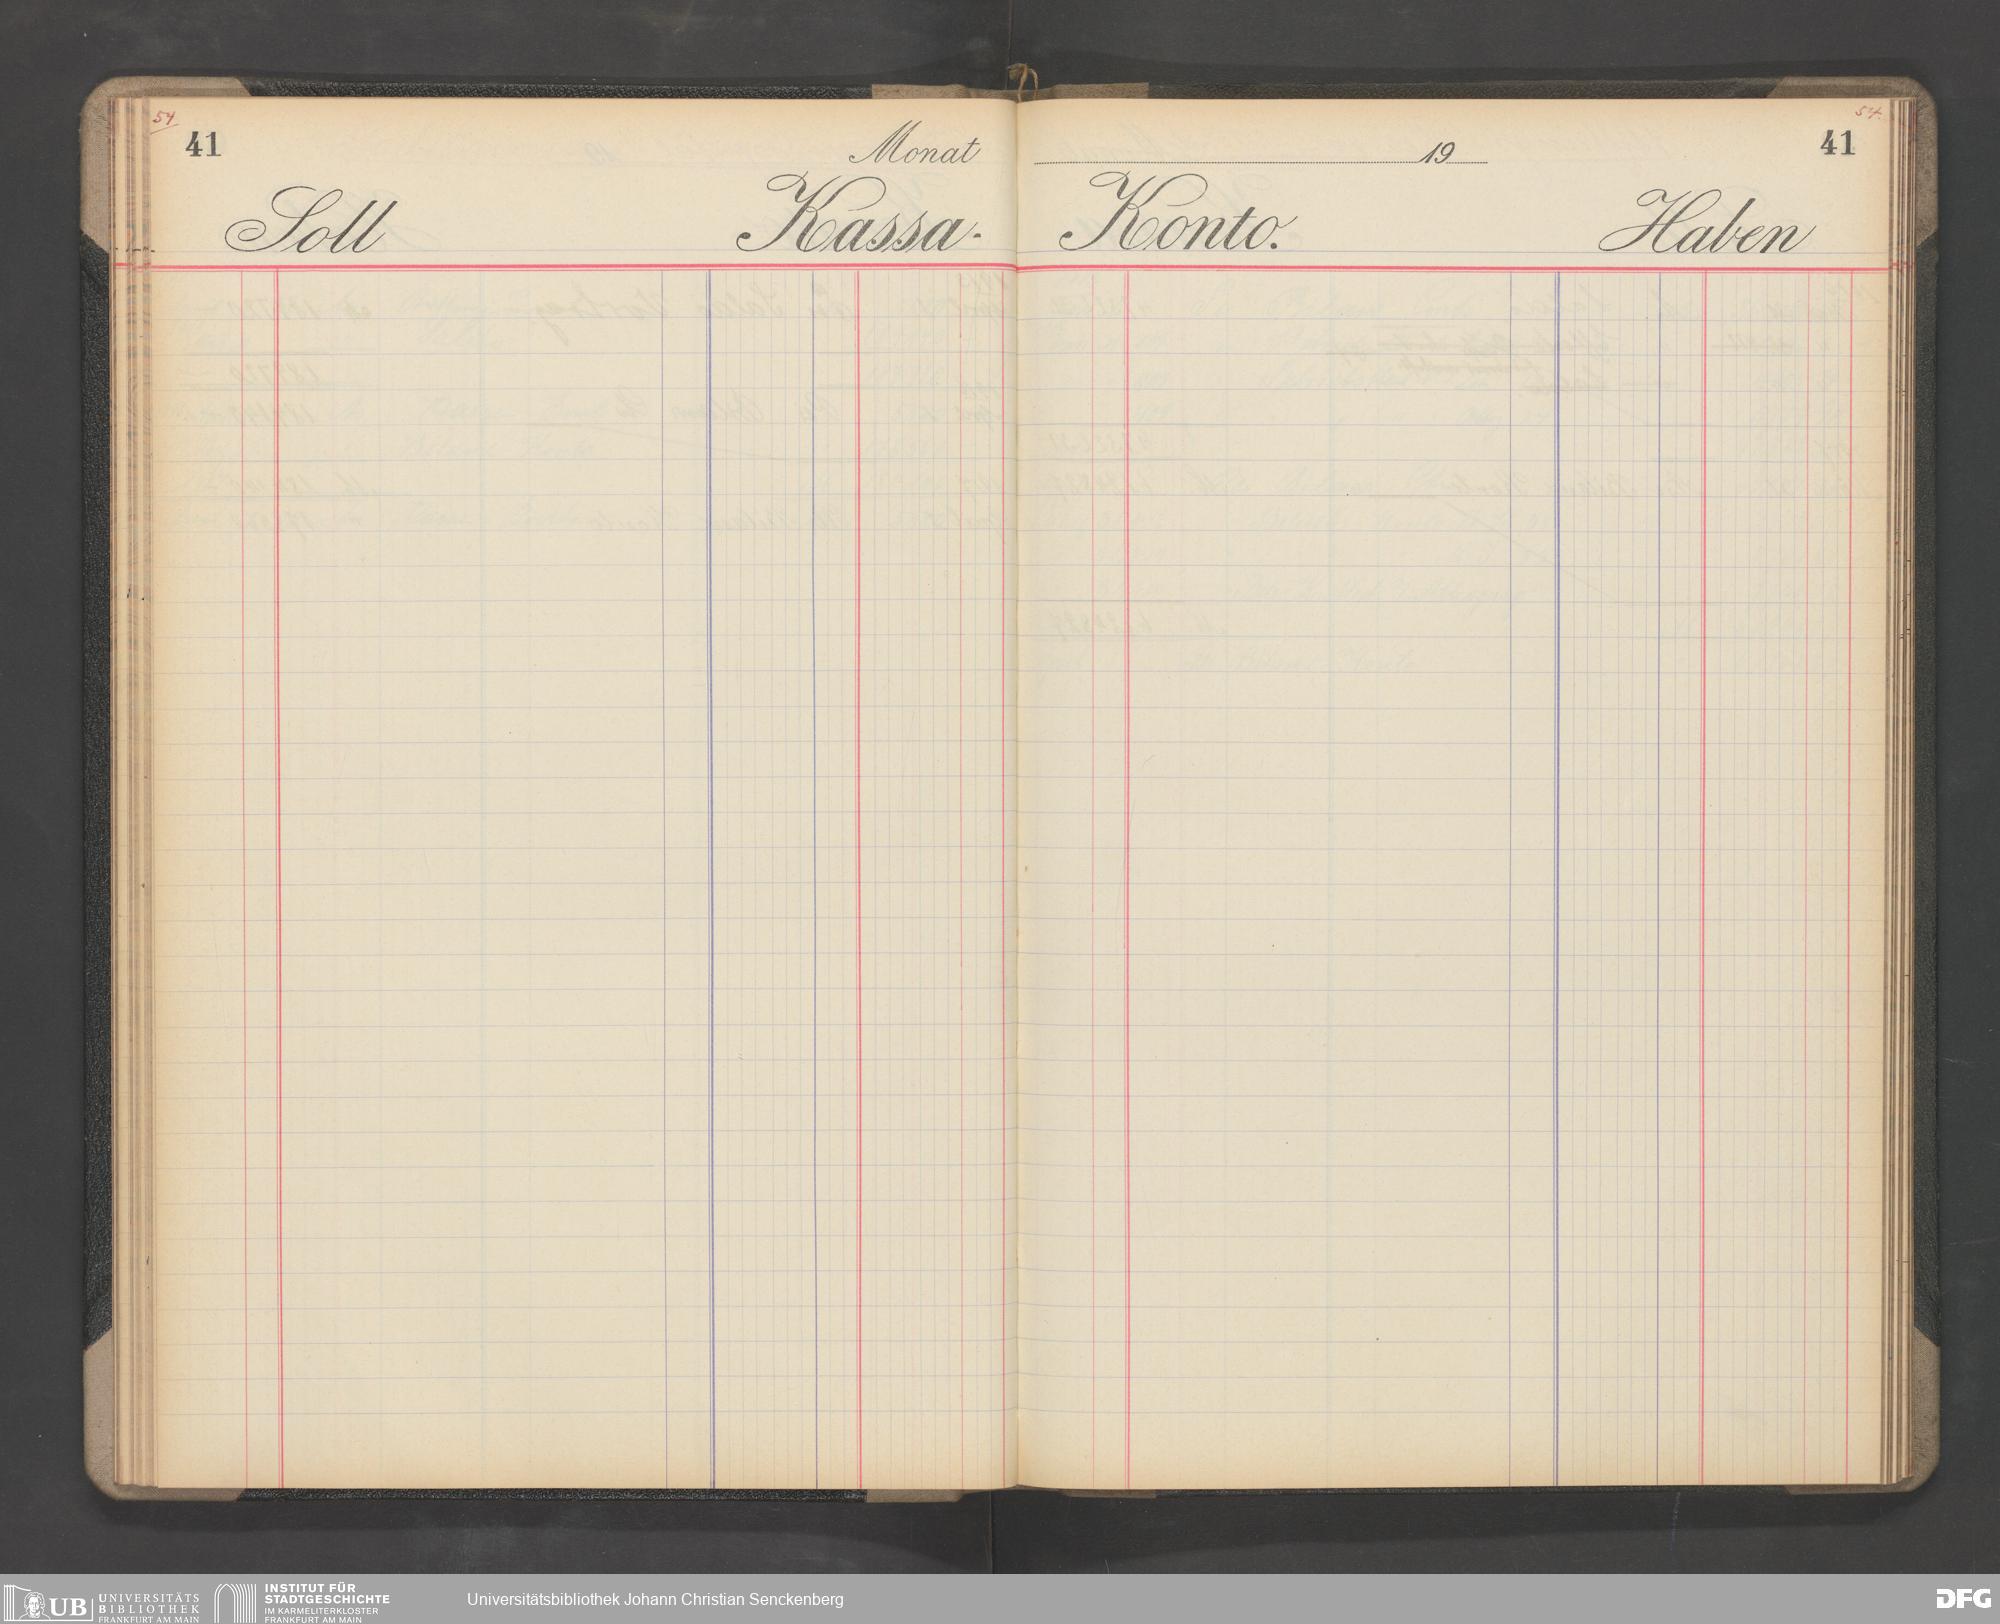 54.
54.
41
Monat
19
41
Soll
Kassa-
Konto.
Haben
UB
UNIVERSITÄTS
BIBLIOTHEK
FRANKFURT AM MAIN
INSTITUT FÜR
STADTGESCHICHTE
IM KARMELITERKLOSTER
FRANKFURT AM MAIN
Universitätsbibliothek Johann Christian Senckenberg
DFG